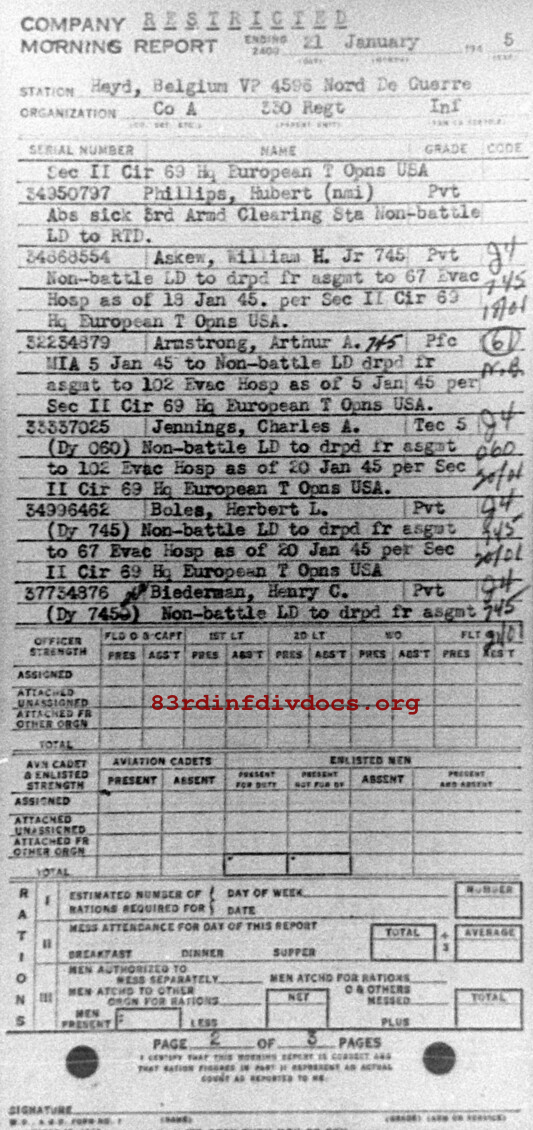 RESTRICTED
COMPANY
MORNING REPORT ENDING 2400 21 January 194 5
STATION Heyd, Belgium VP 4596 Nord De Guerre
ORGANIZATION Co A 330 Regt Inf
SERIAL NUMBER NAME GRADE CODE
Sec II Cir 69 Hq European T Opns USA
34950797 Phillips, Hubert (nmi) Pvt
Abs sick 3rd Armd Clearing Sta Non-battle
LD to RTD.
34868554 Askew, William H. Jr 745 Pvt g4
Non-battle LD to drpd fr asgmt to 67 Evac 745
Hosp as of 18 Jan 45. per Sec II Cir 69 18/01
Hq European T Opns USA.
32234879 Armstrong, Arthur A. 745 Pfc
MIA 5 Jan 45 to Non-battle LD drpd fr N.B.
asgmt to 102 Evac Hosp as of 5 Jan 45 per
Sec II Cir 69 Hq European T Opns USA.
33337025 Jennings, Charles A. Tec 5 g4
(Dy 060) Non-battle LD to drpd fr asgmt 060
to 102 Evac Hosp as of 20 Jan 45 per Sec 20/01
II Cir 69 Hq European T Opns USA.
34996462 Boles, Herbert L. Pvt g4
(Dy 745) Non-battle LD to drpd fr asgmt 745
to 67 Evac Hosp as of 20 Jan 45 per Sec 20/01
II Cir 69 Hq European T Opns USA
37734876 Biederman, Henry C. Pvt g4
(Dy 745) Non-battle LD to drpd fr asgmt 745
OFFICER STRENGTH FLD O & CAPT 1ST LT 2D LT WO FLT
PRES ABS'T PRES ABS'T PRES ABS'T PRES ABS'T PRES ABS'T
ASSIGNED
ATTACHED UNASSIGNED
83rdinfdivdocs.org
ATTACHED FR OTHER ORGN
TOTAL
AVN CADET & ENLISTED STRENGTH AVIATION CADETS ENLISTED MEN
PRESENT ABSENT PRESENT FOR DUTY PRESENT NOT FOR DY ABSENT PRESENT AND ABSENT
ASSIGNED
ATTACHED UNASSIGNED
ATTACHED FR OTHER ORGN
TOTAL
RATIONS
I ESTIMATED NUMBER OF RATIONS REQUIRED FOR { DAY OF WEEK DATE NUMBER
II MESS ATTENDANCE FOR DAY OF THIS REPORT TOTAL ÷ 3 AVERAGE
BREAKFAST DINNER SUPPER
III MEN AUTHORIZED TO MESS SEPARATELY MEN ATCHD FOR RATIONS
MEN ATCHD TO OTHER ORGN FOR RATIONS NET O & OTHERS MESSED TOTAL
MEN PRESENT LESS PLUS
PAGE 2 OF 3 PAGES
I CERTIFY THAT THIS MORNING REPORT IS CORRECT AND
THAT RATION FIGURES IN PART II REPRESENT AN ACTUAL
COUNT AS REPORTED TO ME.
SIGNATURE
W.D., A.G.O. FORM NO. 1 (NAME) (GRADE) (ARM OR SERVICE)